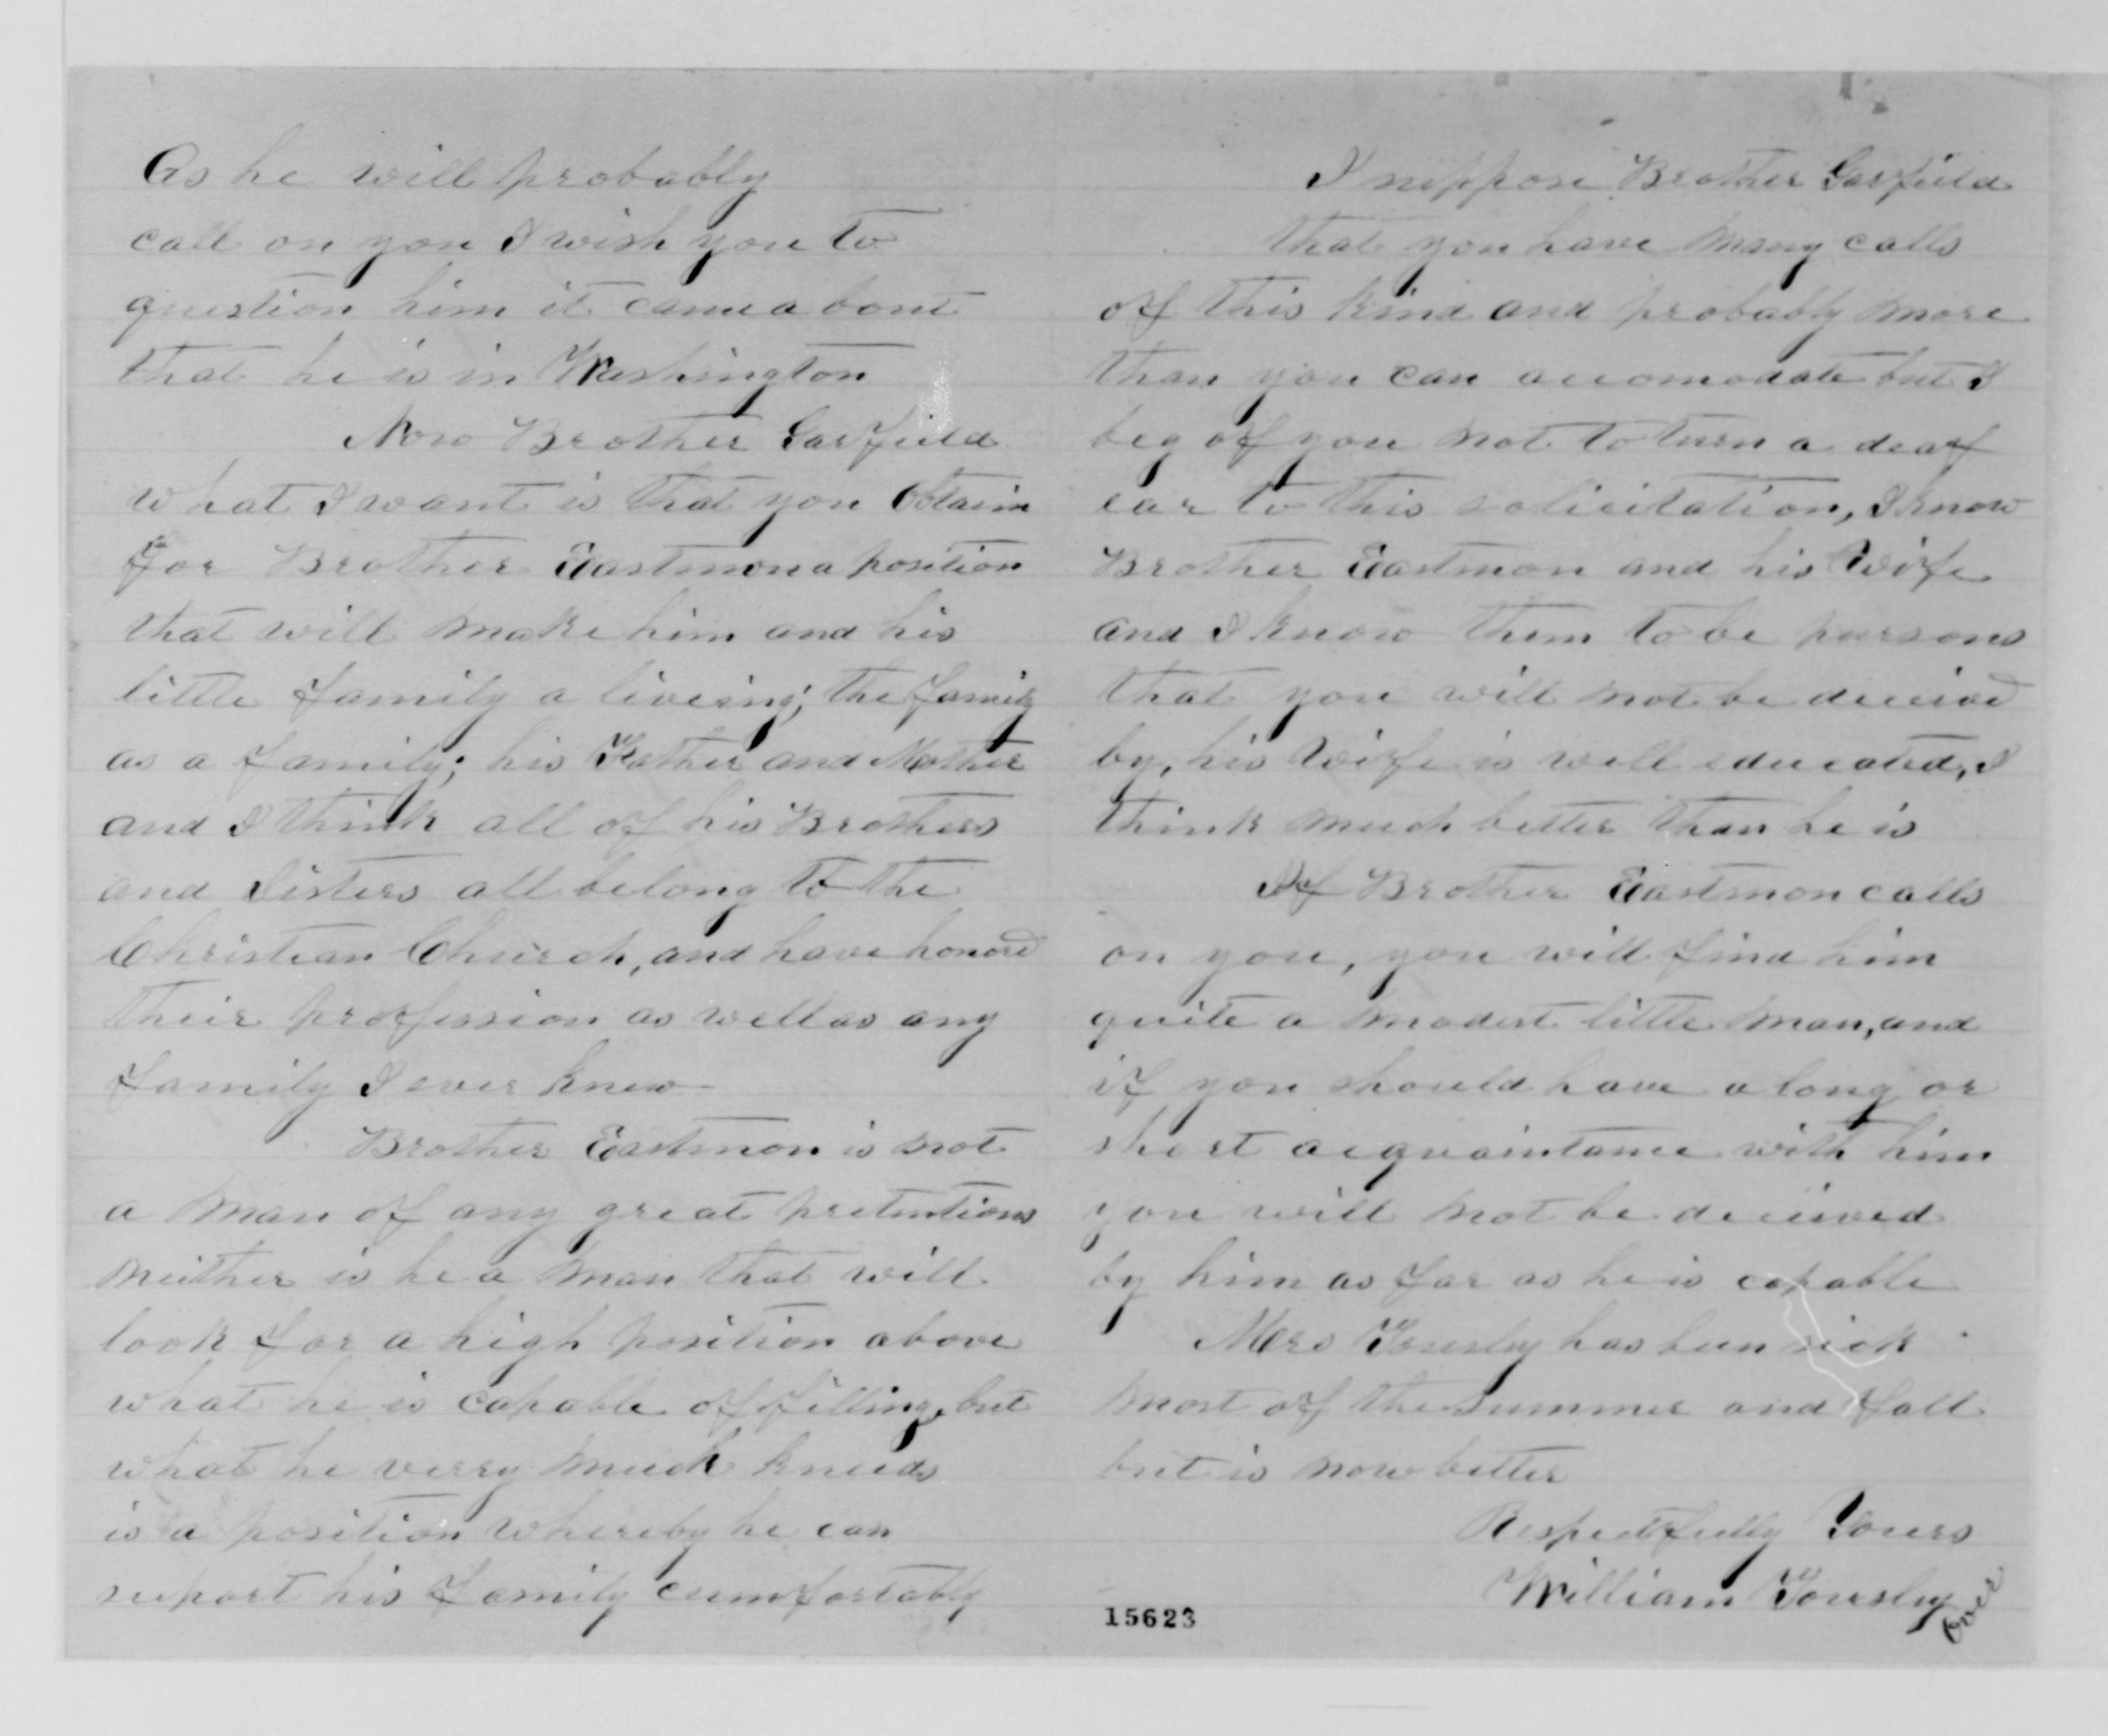 As he will probably
call on you I wish you to
question him it came about
that he is in Washington
Now Brother Garfield
what I want is that you obtain
for Brother Eastmon a position
that will make him and his
little family a liveing; the family
as a family; his Father and Mother
and I think all of his Brothers
and Sisters all belong to the
Christian Church, and have honord
their proffession as well as any
family I ever knew
Brother Eastmon is not
a man of any great pretentions
neither is he a man that will
look for a high position above
what he is capable of filling, but
what he verry much kneeds
is a position whereby he can
suport his family cumfortably
I suppose Brother Garfield
that you have many calls
of this kind and probably more
than you can accomodate but I
beg of you not to turn a deaf
ear to this solicitation, I know
Brother Eastmon and his Wife
and I know them to be persons
that you will not be deceived
by, his Wife is well educated, I
think much better than he is
If Brother Eastmon calls
on you, you will find him
quite a modest little man, and
if you should have a long or
short acquaintance with him
you will not be deceived
by him as far as he is capable
Mrs Tousley has been sick
most of the summer and fall
but is now better
Respectfully Yours
William Tousley
over
15623